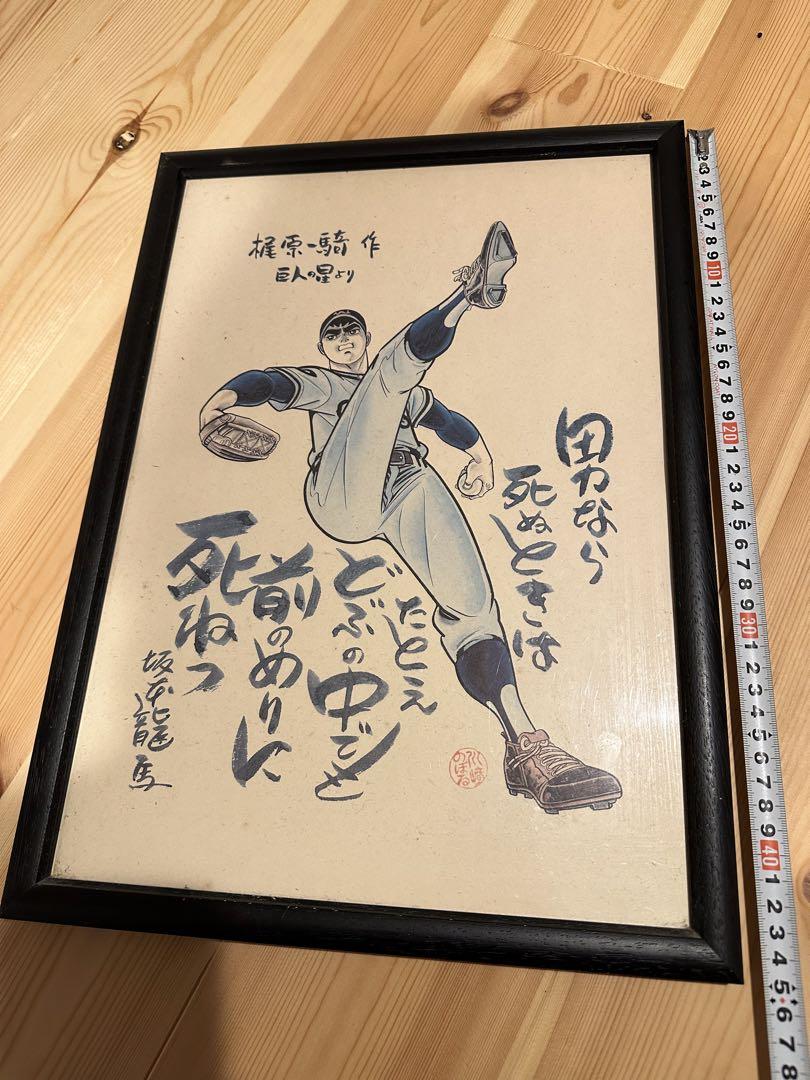 梶原一騎 作
巨人の星より
男なら
死ぬときは
たとえ
どぶの中でも
前のめりに
死ねっ
坂本龍馬
川崎
のぼる
2 3 4 5 6 7 8 9 10 1 2 3 4 5 6 7 8 9 20 1 2 3 4 5 6 7 8 9 30 1 2 3 4 5 6 7 8 9 40 1 2 3 4 5 6 7 8